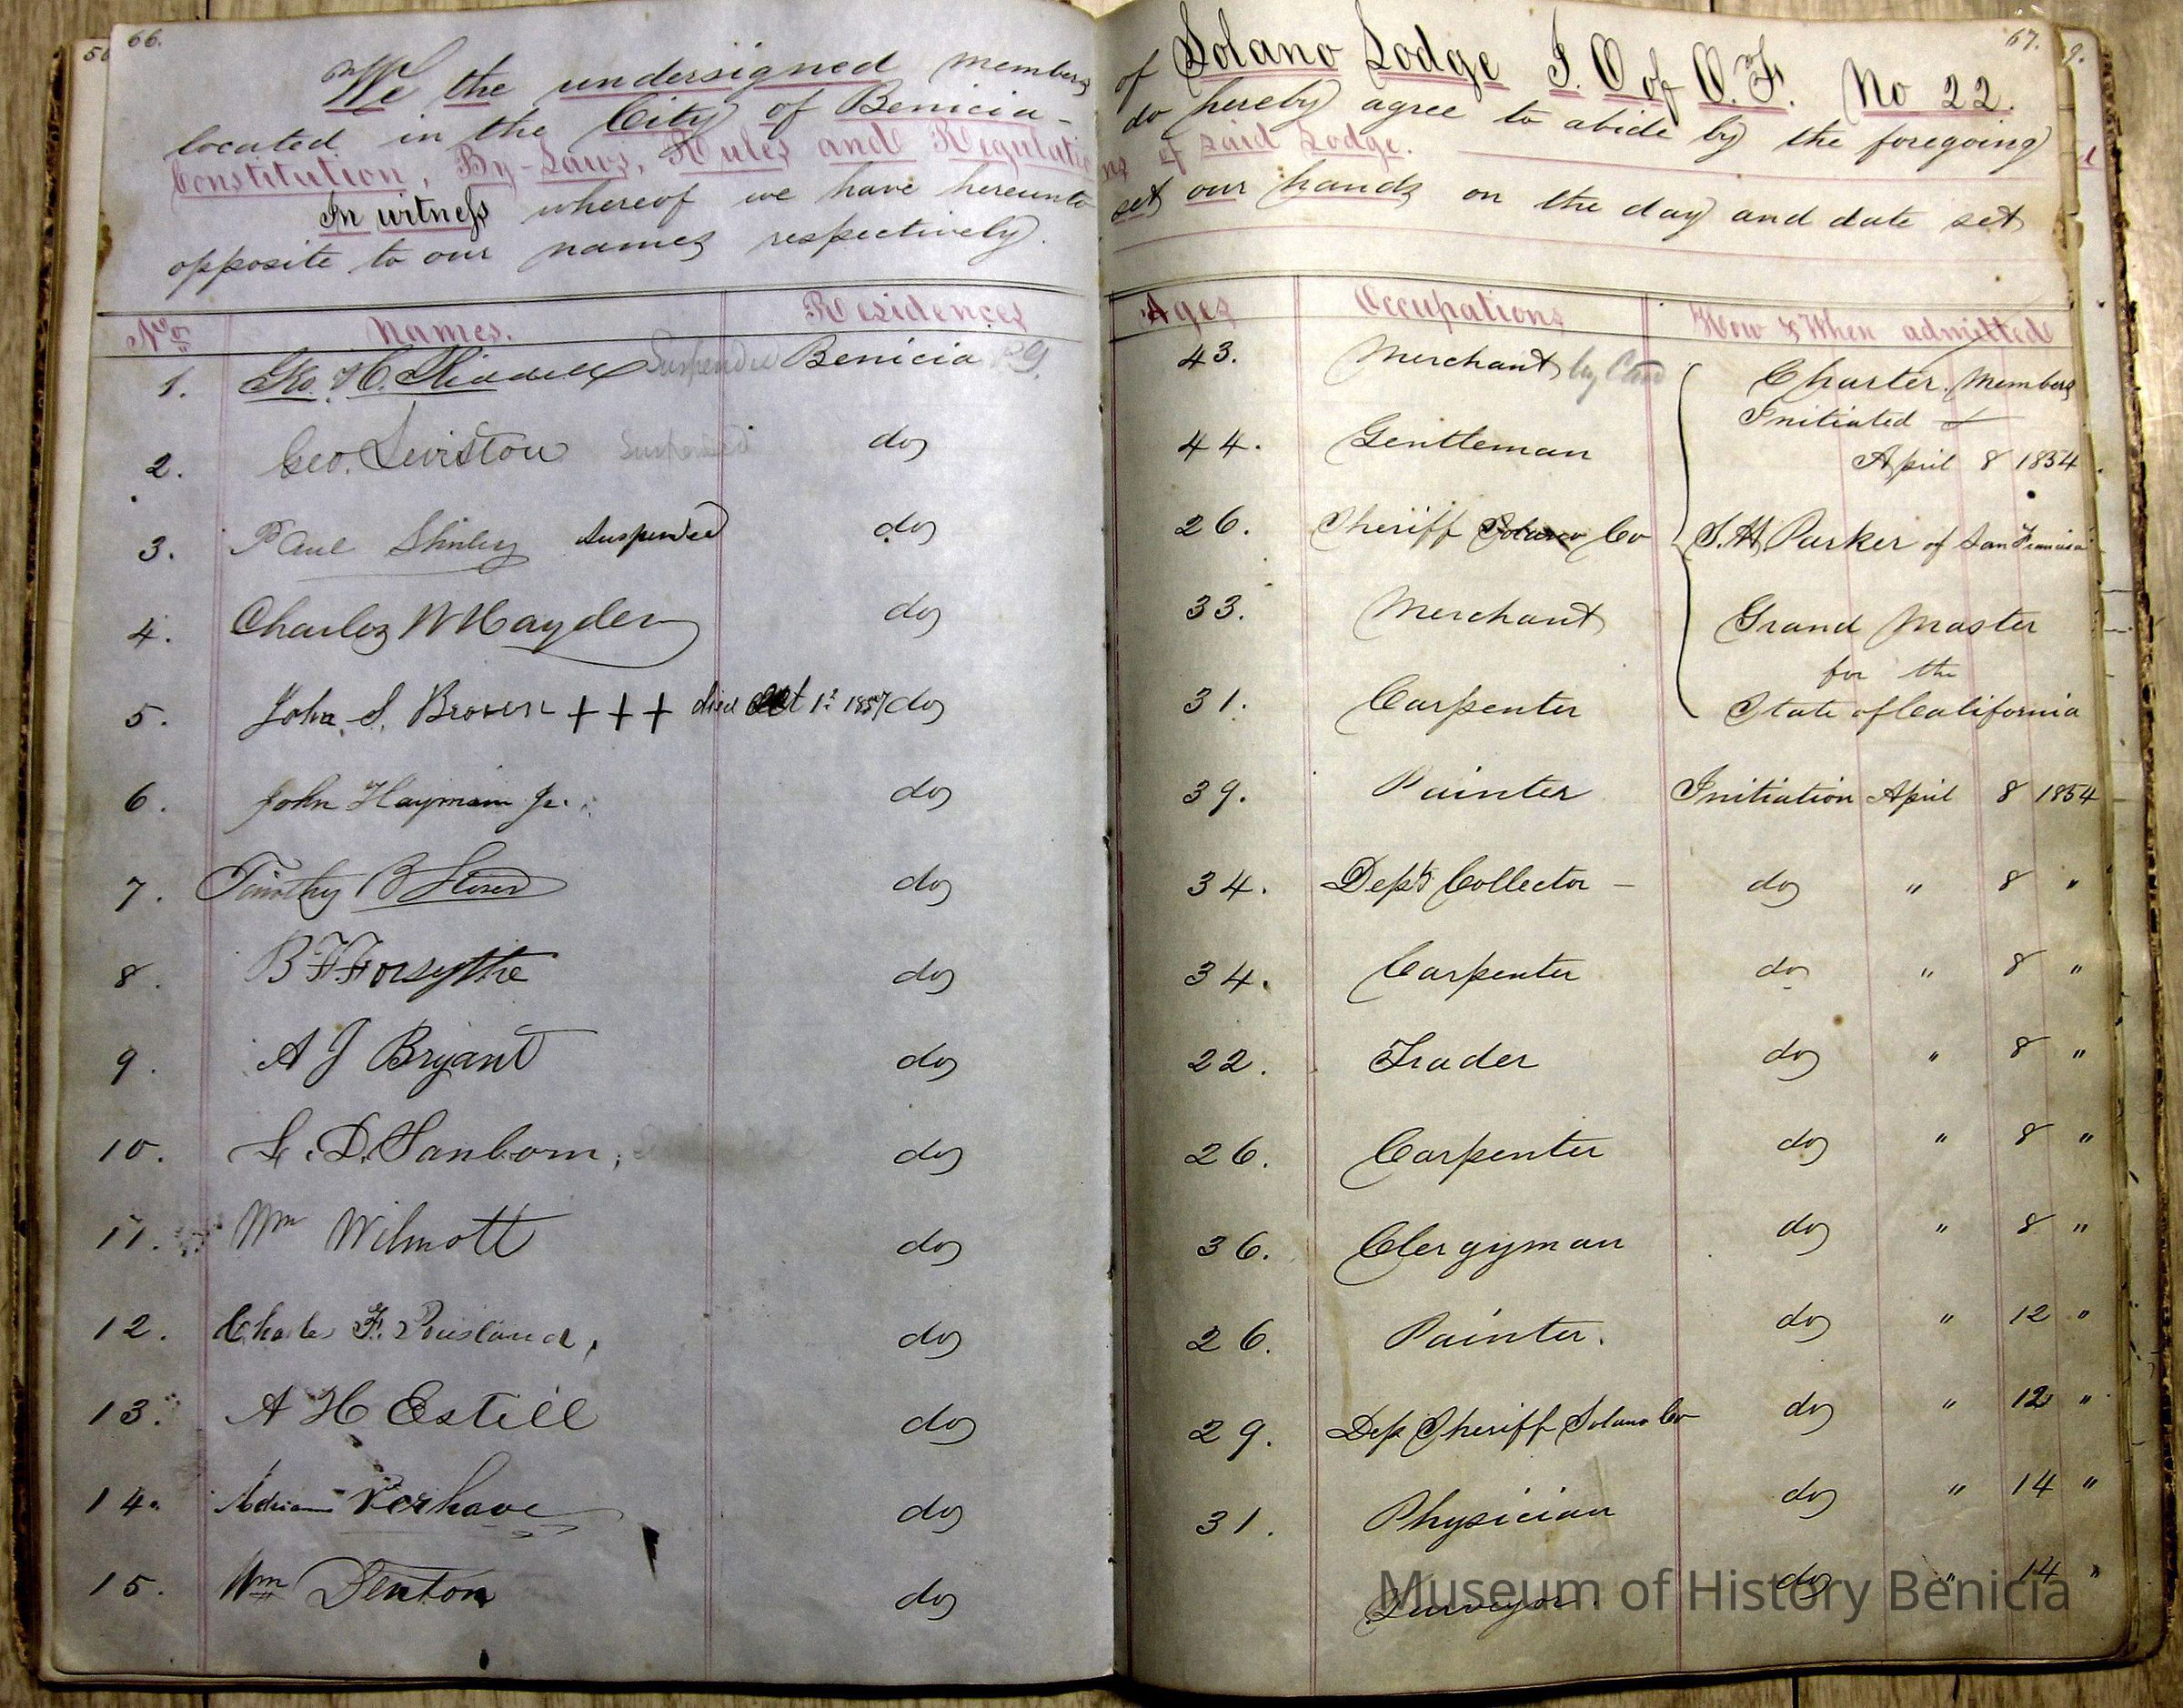 66.
67.
We the undersigned members of Solano Lodge I. O of O. F. No 22.
located in the City of Benicia - do hereby agree to abide by the foregoing
Constitution, By-Laws, Rules and Regulations of said Lodge.
In witness whereof we have hereunto set our hands on the day and date set
opposite to our names respectively.
Nos Names. Residences Ages Occupations How & When admitted
1. Geo. H. Riddell Suspended Benicia P.G. 43. Merchant Charter Members
Initiated
2. Geo. Leviston Suspended do 44. Gentleman April 8 1854
3. Paul Shirley Suspended do 26. Sheriff Solano Co S. H. Parker of San Francisco
4. Charles W Hayden do 33. Merchant Grand Master
for the
5. John S. Brown +++ died Oct 1st 1857 do 31. Carpenter State of California
6. John Hayman Jr. do 39. Painter Initiation April 8 1854
7. Timothy B Storer do 34. Dept Collector - do " 8 "
8. B F Forsythe do 34. Carpenter do " 8 "
9. A J Bryant do 22. Trader do " 8 "
10. L. D. Sanborn, do 26. Carpenter do " 8 "
11. Wm Wilmott do 36. Clergyman do " 8 "
12. Charles F. Pousland, do 26. Painter. do " 12 "
13. A H Estell do 29. Dep Sheriff Solano Co do " 12 "
14. Adriann Verhave do 31. Physician do " 14 "
15. Wm Denton do Surveyor. do " 14 "
Museum of History Benicia